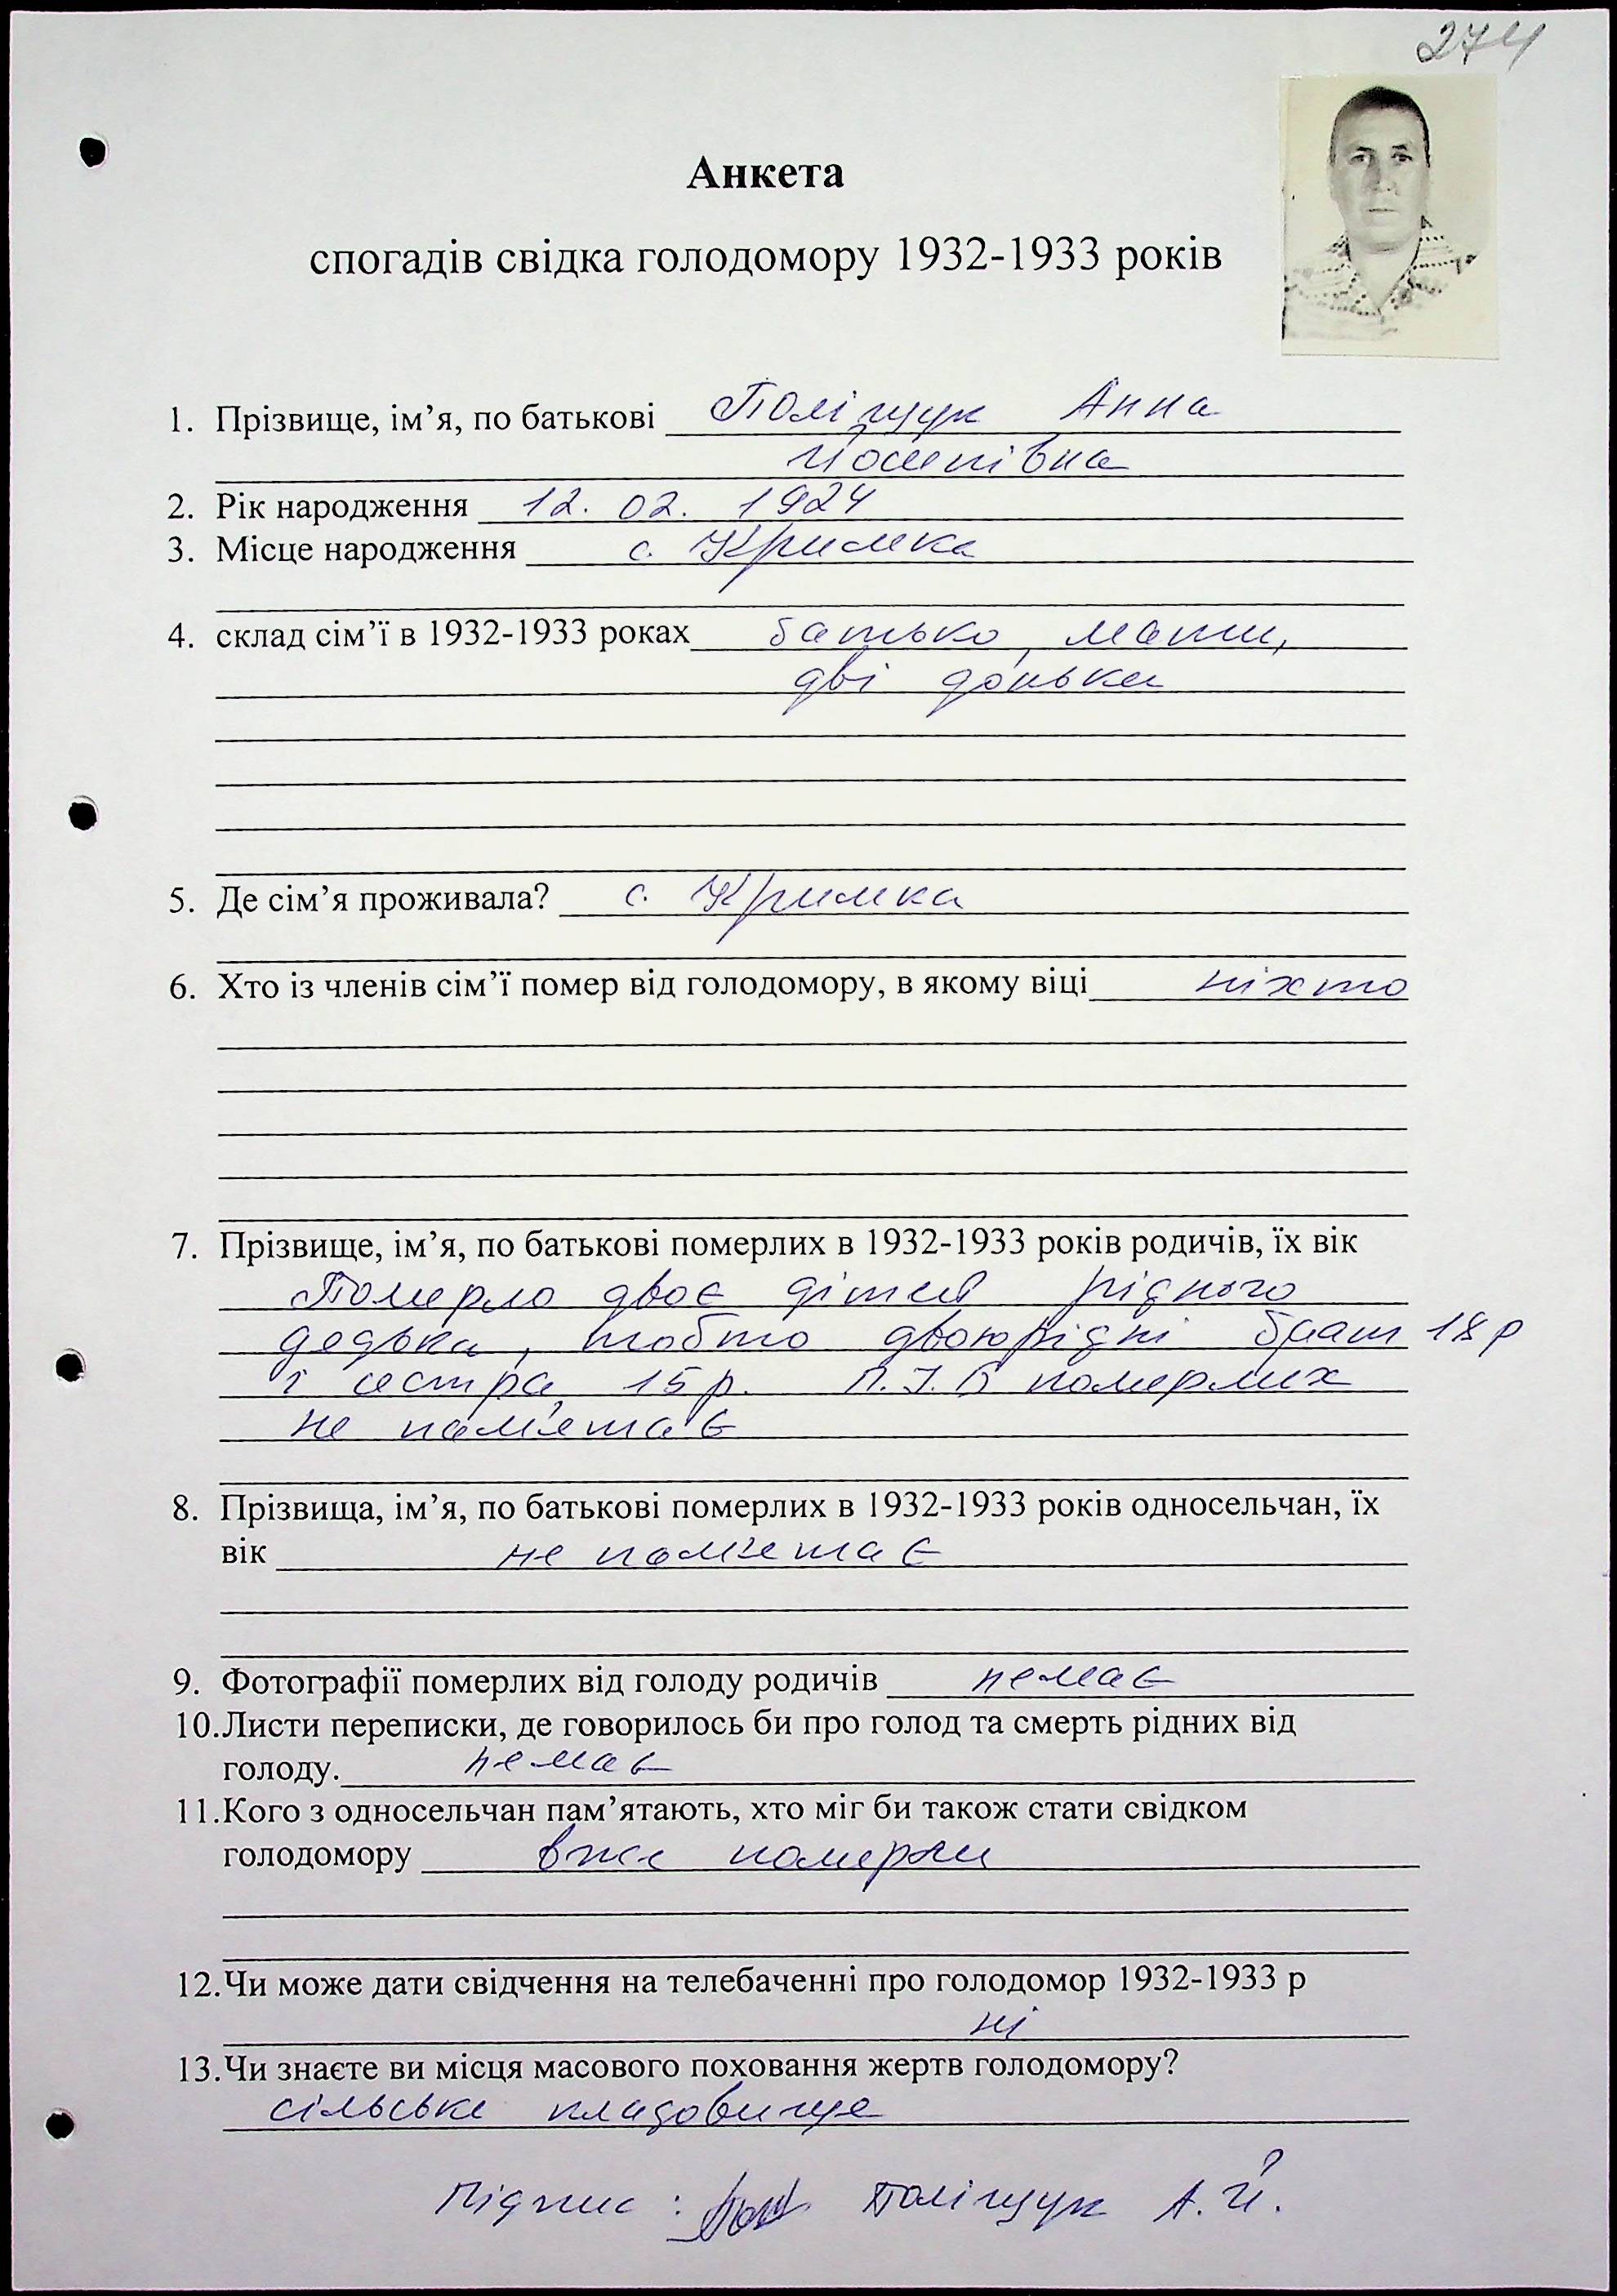 274
Анкета
спогадів свідка голодомору 1932-1933 років
1. Прізвище, ім’я, по батькові Поліщук Анна
Йосипівна
2. Рік народження 12. 02. 1924
3. Місце народження с. Кримка
4. склад сім’ї в 1932-1933 роках батько, мати,
дві доньки
5. Де сім’я проживала? с. Кримка
6. Хто із членів сім’ї помер від голодомору, в якому віці ніхто
7. Прізвище, ім’я, по батькові померлих в 1932-1933 років родичів, їх вік
Померло двоє дітей рідного
дядька, тобто двоюрідні брат 18 р
і сестра 15 р. П.І.Б померлих
не пам'ятає
8. Прізвища, ім’я, по батькові померлих в 1932-1933 років односельчан, їх
вік не пам'ятає
9. Фотографії померлих від голоду родичів немає
10.Листи переписки, де говорилось би про голод та смерть рідних від
голоду. немає
11.Кого з односельчан пам’ятають, хто міг би також стати свідком
голодомору вже померли
12.Чи може дати свідчення на телебаченні про голодомор 1932-1933 р
ні
13.Чи знаєте ви місця масового поховання жертв голодомору?
сільське кладовище
Підпис : Поліщук А. Й.